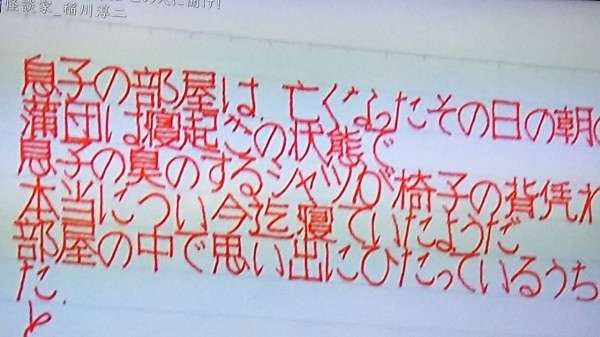 怪談家_稲川淳二
息子の部屋は、亡くなったその日の朝の
蒲団は寝起きの状態で
息子の臭のするシャツが椅子の背凭れ
本当につい今迄寝ていたようだ
部屋の中で思い出にひたっているうち
だ.
と